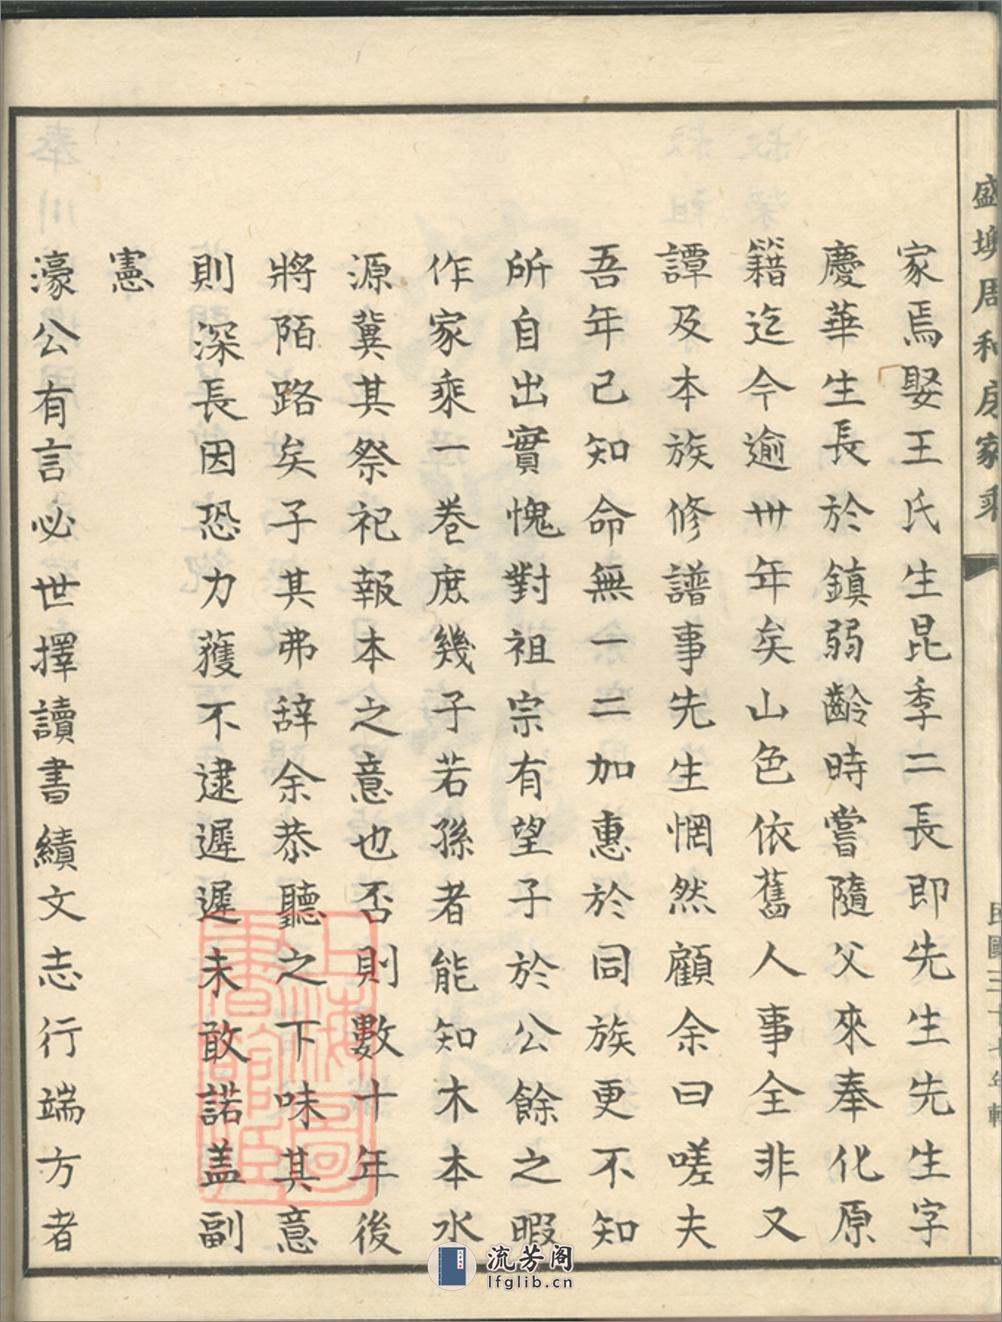 盛塊周和房家乘
民國三十七年輯
家焉娶王氏生昆季二長即先生先生字
慶華生長於鎮弱齡時嘗隨父來奉化原
籍迄今逾卅年矣山色依舊人事全非又
譚及本族修譜事先生惘然顧余曰嗟夫
吾年已知命無一二加惠於同族更不知
所自出實愧對祖宗有望子於公餘之暇
作家乘一卷庶幾子若孫者能知木本水
源冀其祭祀報本之意也否則數十年後
將陌路矣子其弗辞余恭聽之下味其意
則深長因恐力薙不逮遲遲未敢諾盖副
憲
濠公有言必世擇讀書績文志行端方者
上海圖書館藏
流芳阁
lfglib.cn